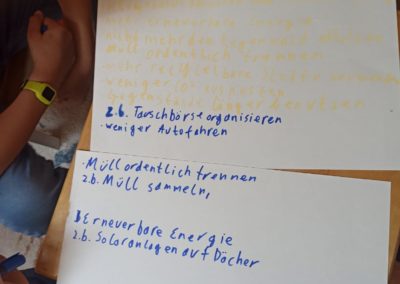 mehr erneuerbare Energie
nicht mehr den
Müll ordentlich trennen
mehr recycelbare Stoffe verwenden
weniger CO² ausstoßen
Gegenstände länger benutzen
z.b. Tauschbörse organisieren
· weniger Autofahren
· Müll ordentlich trennen
z.b. Müll sammeln,
Erneuerbare Energie
z.b. Solaranlagen auf Dächer